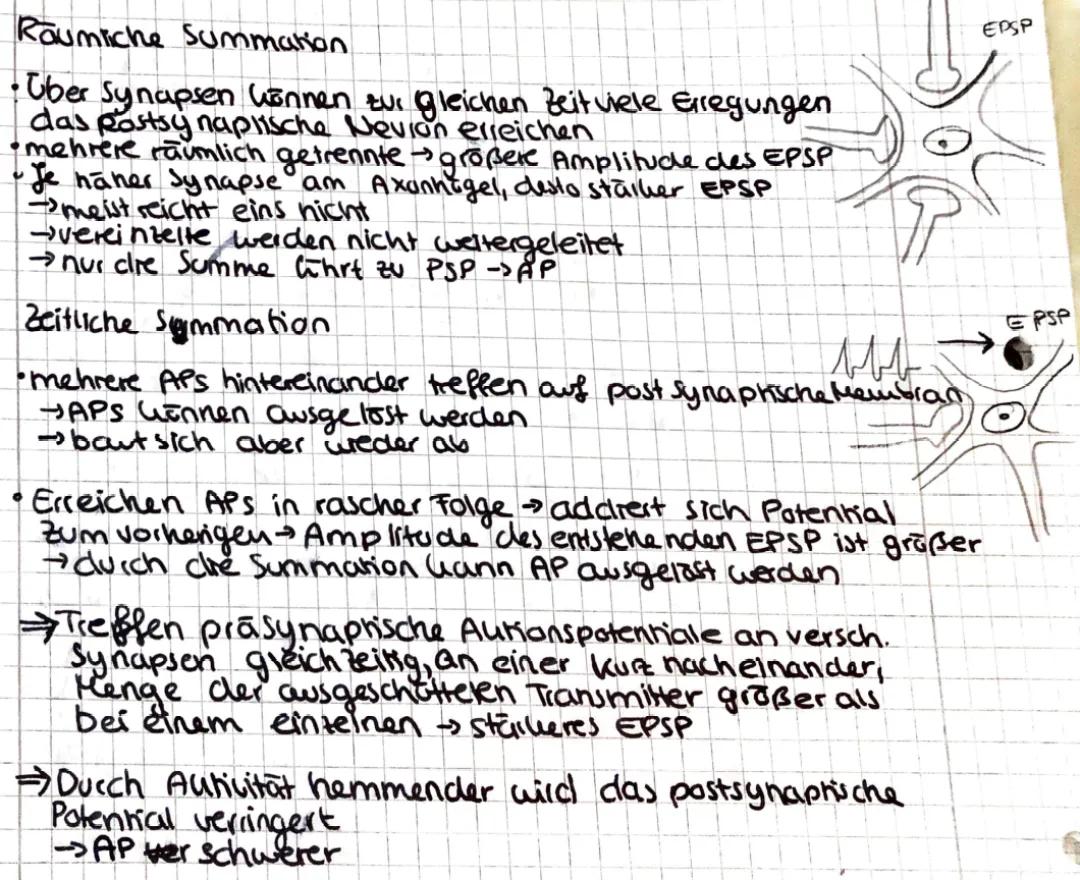 Räumliche Summation
EPSP
• Über Synapsen können zur gleichen Zeit viele Erregungen
das postsynaptische Neuron erreichen
• mehrere räumlich getrennte → größere Amplitude des EPSP
• Je näher Synapse am Axonhügel, desto stärker EPSP
→ meist reicht eins nicht
→ vereinzelte werden nicht weitergeleitet
→ nur die Summe führt zu PSP → AP
Zeitliche Summation
EPSP
• mehrere APs hintereinander treffen auf postsynaptische Membran
→ APs können ausgelöst werden
→ baut sich aber wieder ab
• Erreichen APs in rascher Folge → addiert sich Potential
zum vorherigen → Amplitude des entstehenden EPSP ist größer
→ durch die Summation kann AP ausgelöst werden
⇒ Treffen präsynaptische Aktionspotentiale an versch.
Synapsen gleichzeitig, an einer kurz nacheinander,
Menge der ausgeschütteten Transmitter größer als
bei einem einzelnen → stärkeres EPSP
⇒ Durch Aktivität hemmender wird das postsynaptische
Potential verringert
→ AP schwerer